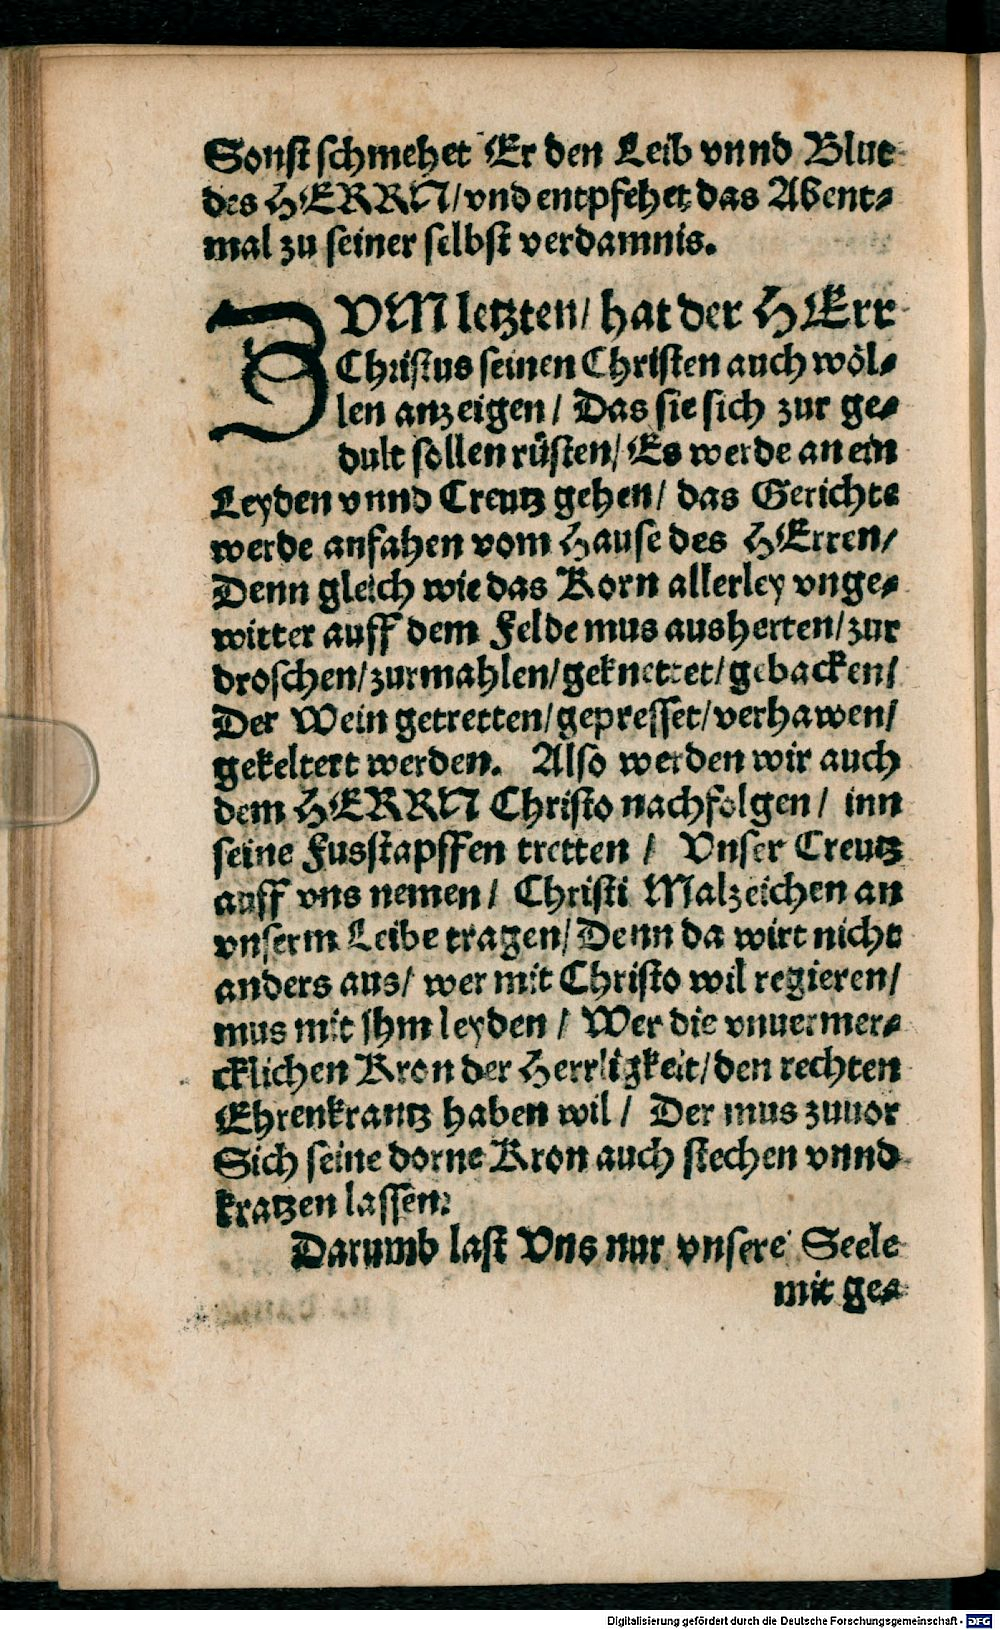 Sonst schmehet Er den Leib vnnd Blut
des HERRN/ vnd entpfehet das Abent-
mal zu seiner selbst verdamnis.
ZVM letzten/ hat der HErr
Christus seinen Christen auch wöl-
len anzeigen/ Das sie sich zur ge-
dult sollen rüsten/ Es werde an ein
Leyden vnnd Creutz gehen/ das Gerichte
werde anfahen vom Hause des HErren/
Denn gleich wie das Korn allerley vnge-
witter auff dem Felde mus ausherten/ zur
droschen/ zurmahlen/ geknettet/ gebacken/
Der Wein getretten/ gepresset/ verhawen/
gekeltert werden. Also werden wir auch
dem HERRN Christo nachfolgen/ inn
seine Fusstapffen tretten/ Vnser Creutz
auff vns nemen/ Christi Malzeichen an
vnserm Leibe tragen/ Denn da wirt nicht
anders aus/ wer mit Christo wil regieren/
mus mit jhm leyden/ Wer die vnuermer-
cklichen Kron der Herrligkeit/ den rechten
Ehrenkrantz haben wil/ Der mus zuuor
Sich seine dorne Kron auch stechen vnnd
kratzen lassen.
Darumb last Vns nur vnsere Seele
mit ge-
Digitalisierung gefördert durch die Deutsche Forschungsgemeinschaft - DFG